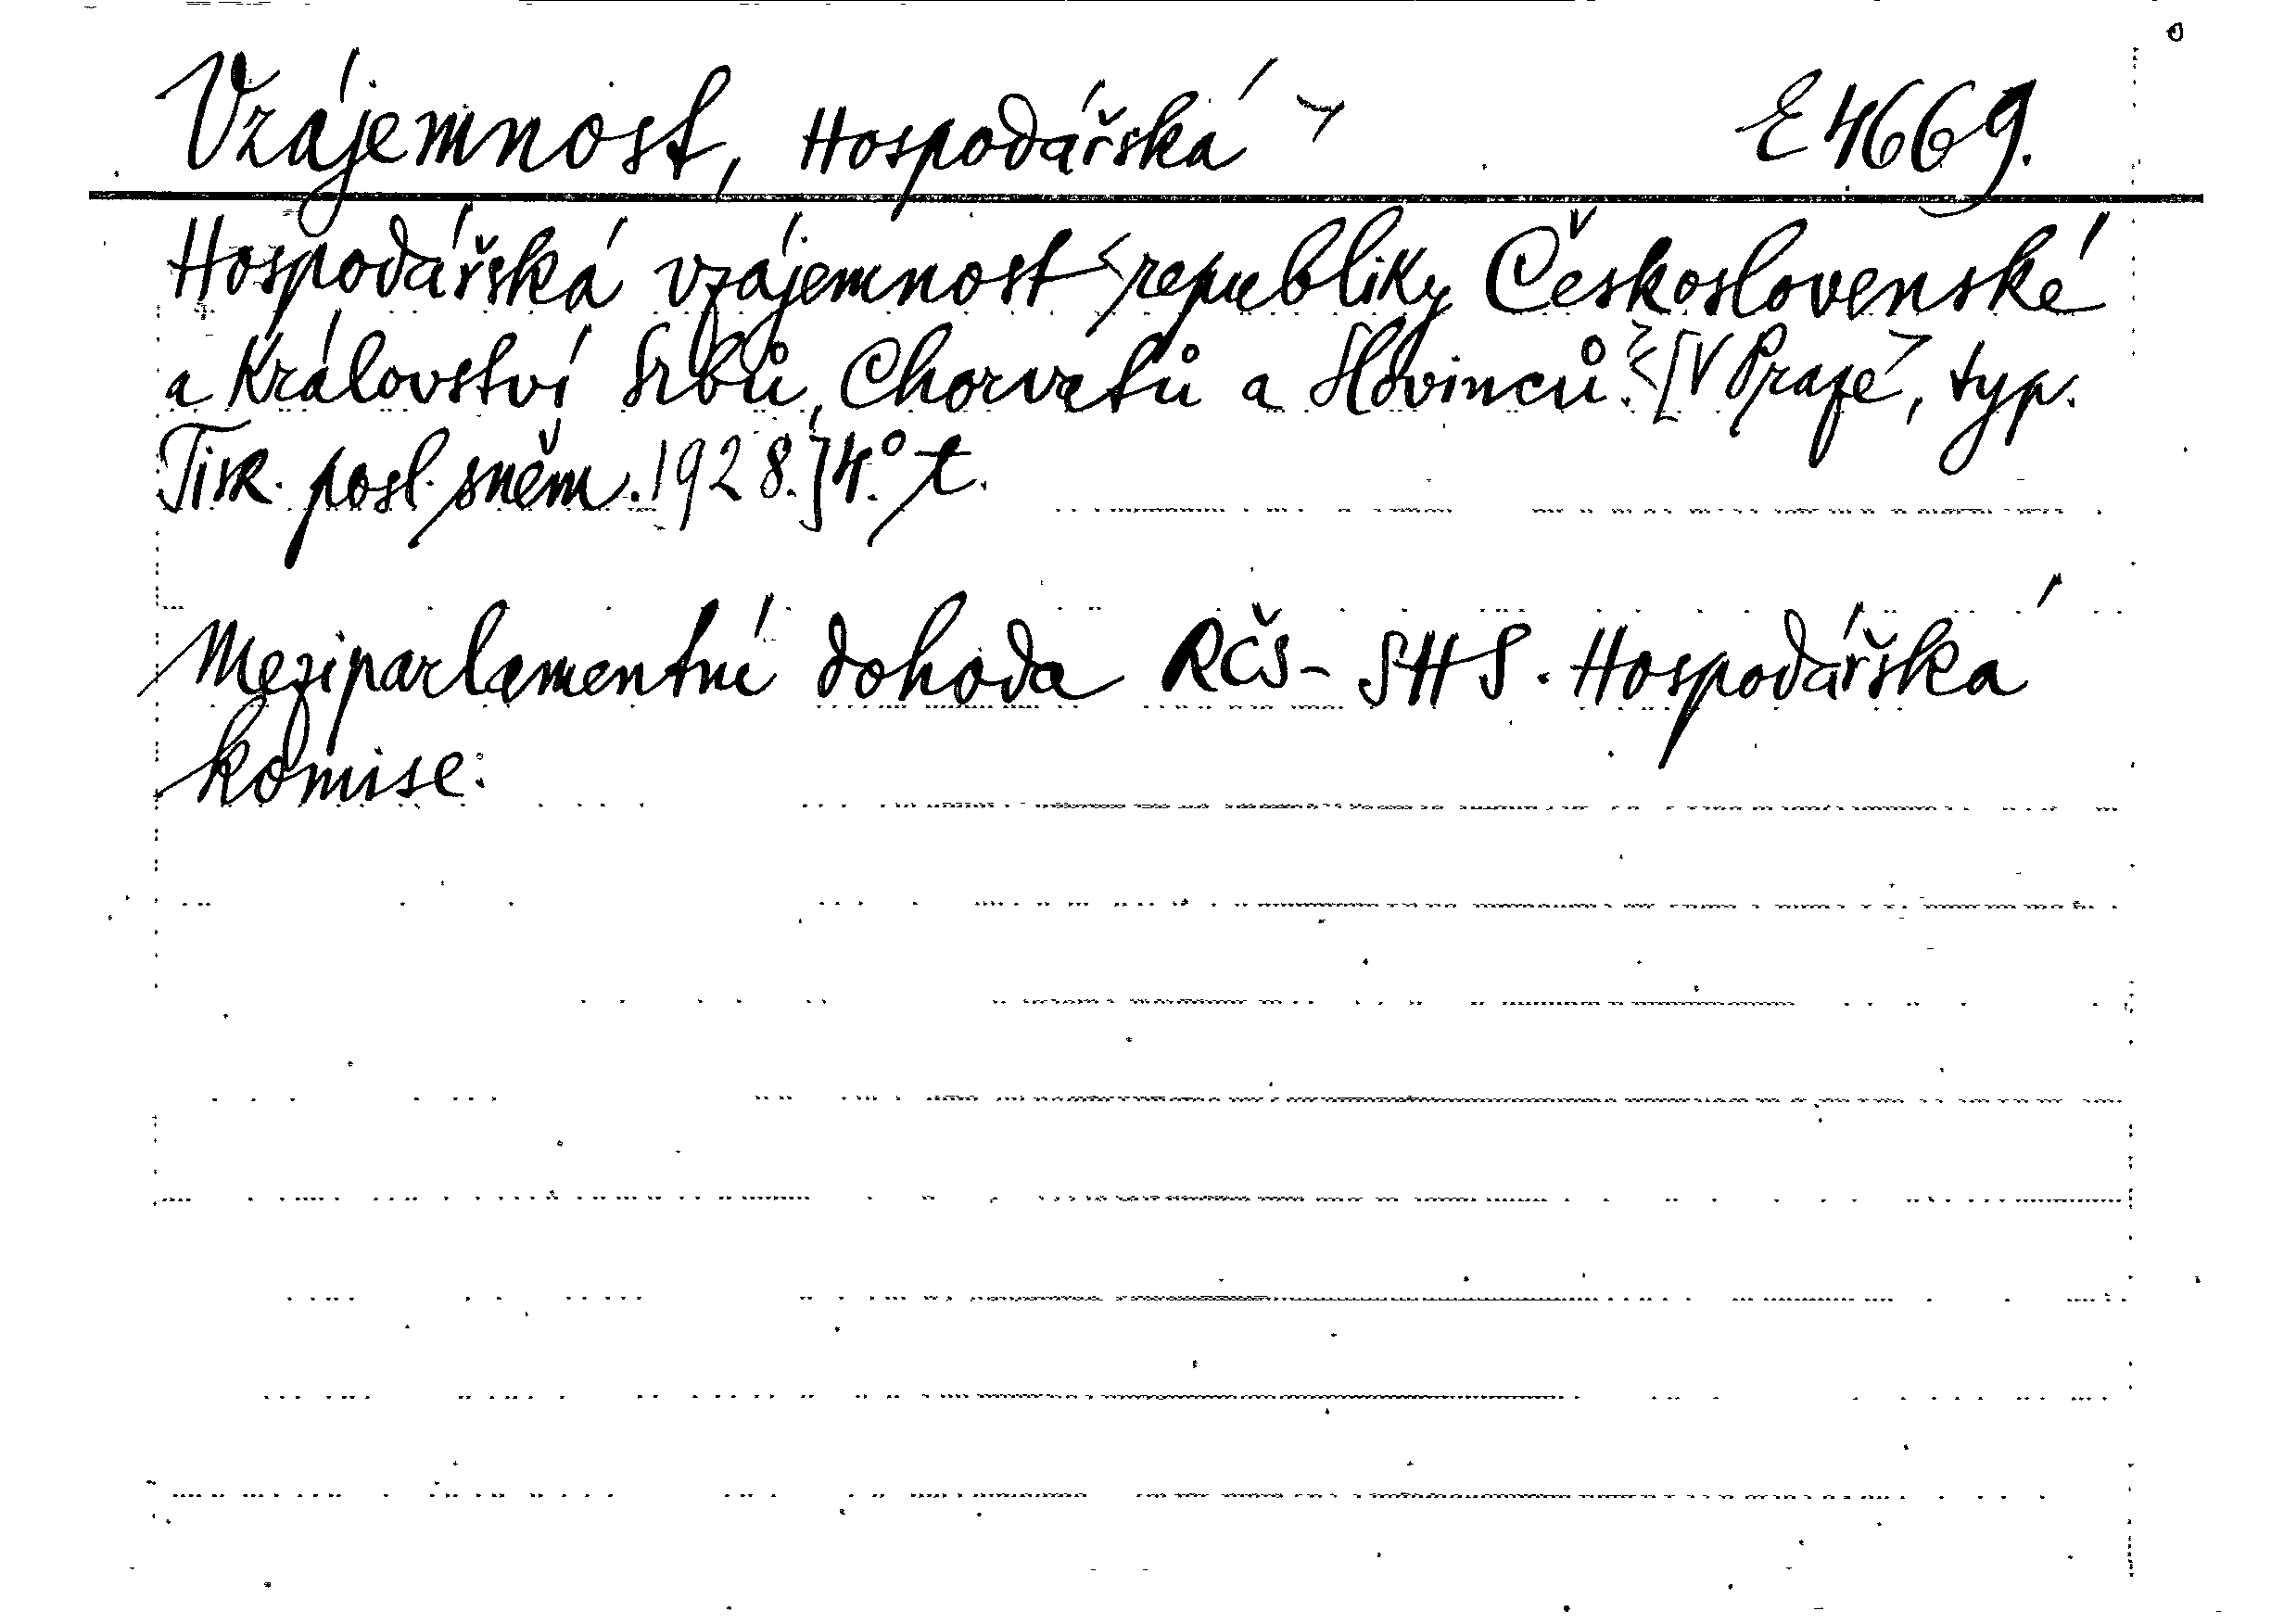 Vzájemnost, Hospodářská ~ E 4669.
Hospodářská vzájemnost < republiky Československé
a Království Srbů, Chorvatů a Slovinců. > < [V Praze >, typ.
Tisk. posl. sněm. 1928.] 4.° t.
Meziparlamentní dohoda RČS - SHS. Hospodářská
komise: